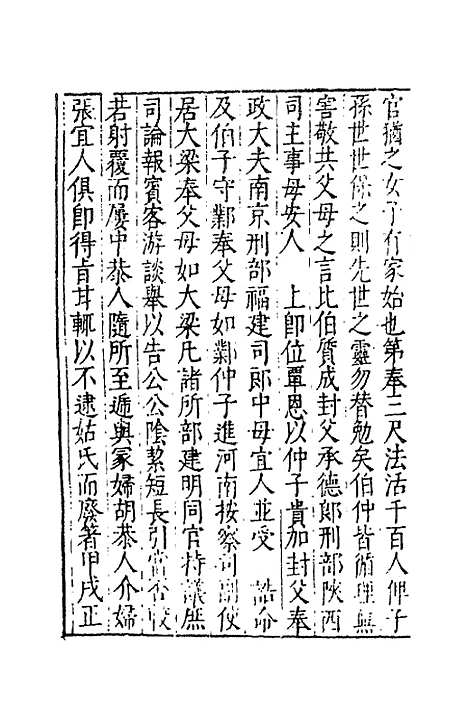 官猶之女子有家始也第奉三尺法活千百人俾子
孫世世保之則先世之靈勿替勉矣伯仲皆循理無
害敬共父母之言比伯質成封父承德郎刑部陝西
司主事母安人　上卽位覃恩以仲子貴加封父奉
政大夫南京刑部福建司郎中母宜人並受　誥命
及伯子守鄴奉父母如鄴仲子進河南按察司副使
居大梁奉父母如大梁凡諸所部建明同官持議庶
司論報賓客游談舉以告公公陰絜短長引當否佼
若射覆而屢中恭人隨所至遞與冢婦胡恭人介婦
張宜人俱卽得旨甘輒以不逮姑氏而廢箸甲戌正